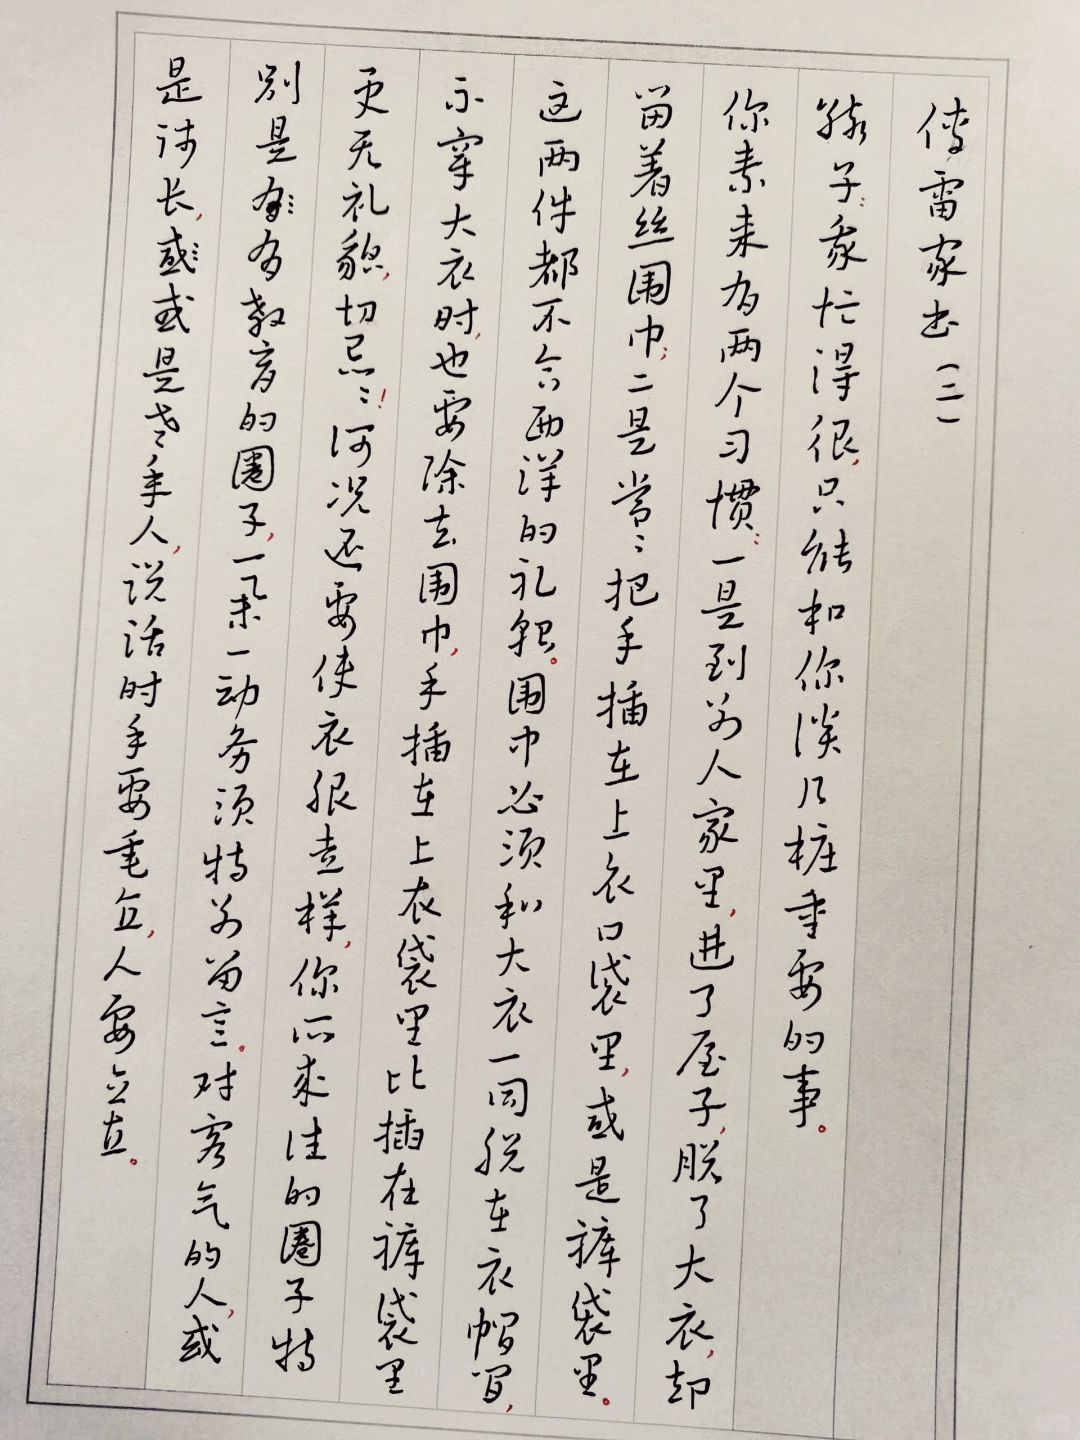 傅雷家书（二）
孩子：我忙得很，只能和你谈几桩重要的事。
你素来有两个习惯：一是到别人家里，进了屋子，脱了大衣，却
留着丝围巾；二是常〻把手插在上衣口袋里，或是裤袋里。
这两件都不合西洋的礼貌。围巾必须和大衣一同脱在衣帽间，
不穿大衣时，也要除去围巾，手插在上衣袋里比插在裤袋里
更无礼貌，切忌〻〻！何况还要使衣服走样，你所来往的圈子特
别是有教育的圈子，一举一动务须特别留意。对客气的人，或
是师长，或是老年人，说话时手要垂直，人要立直。